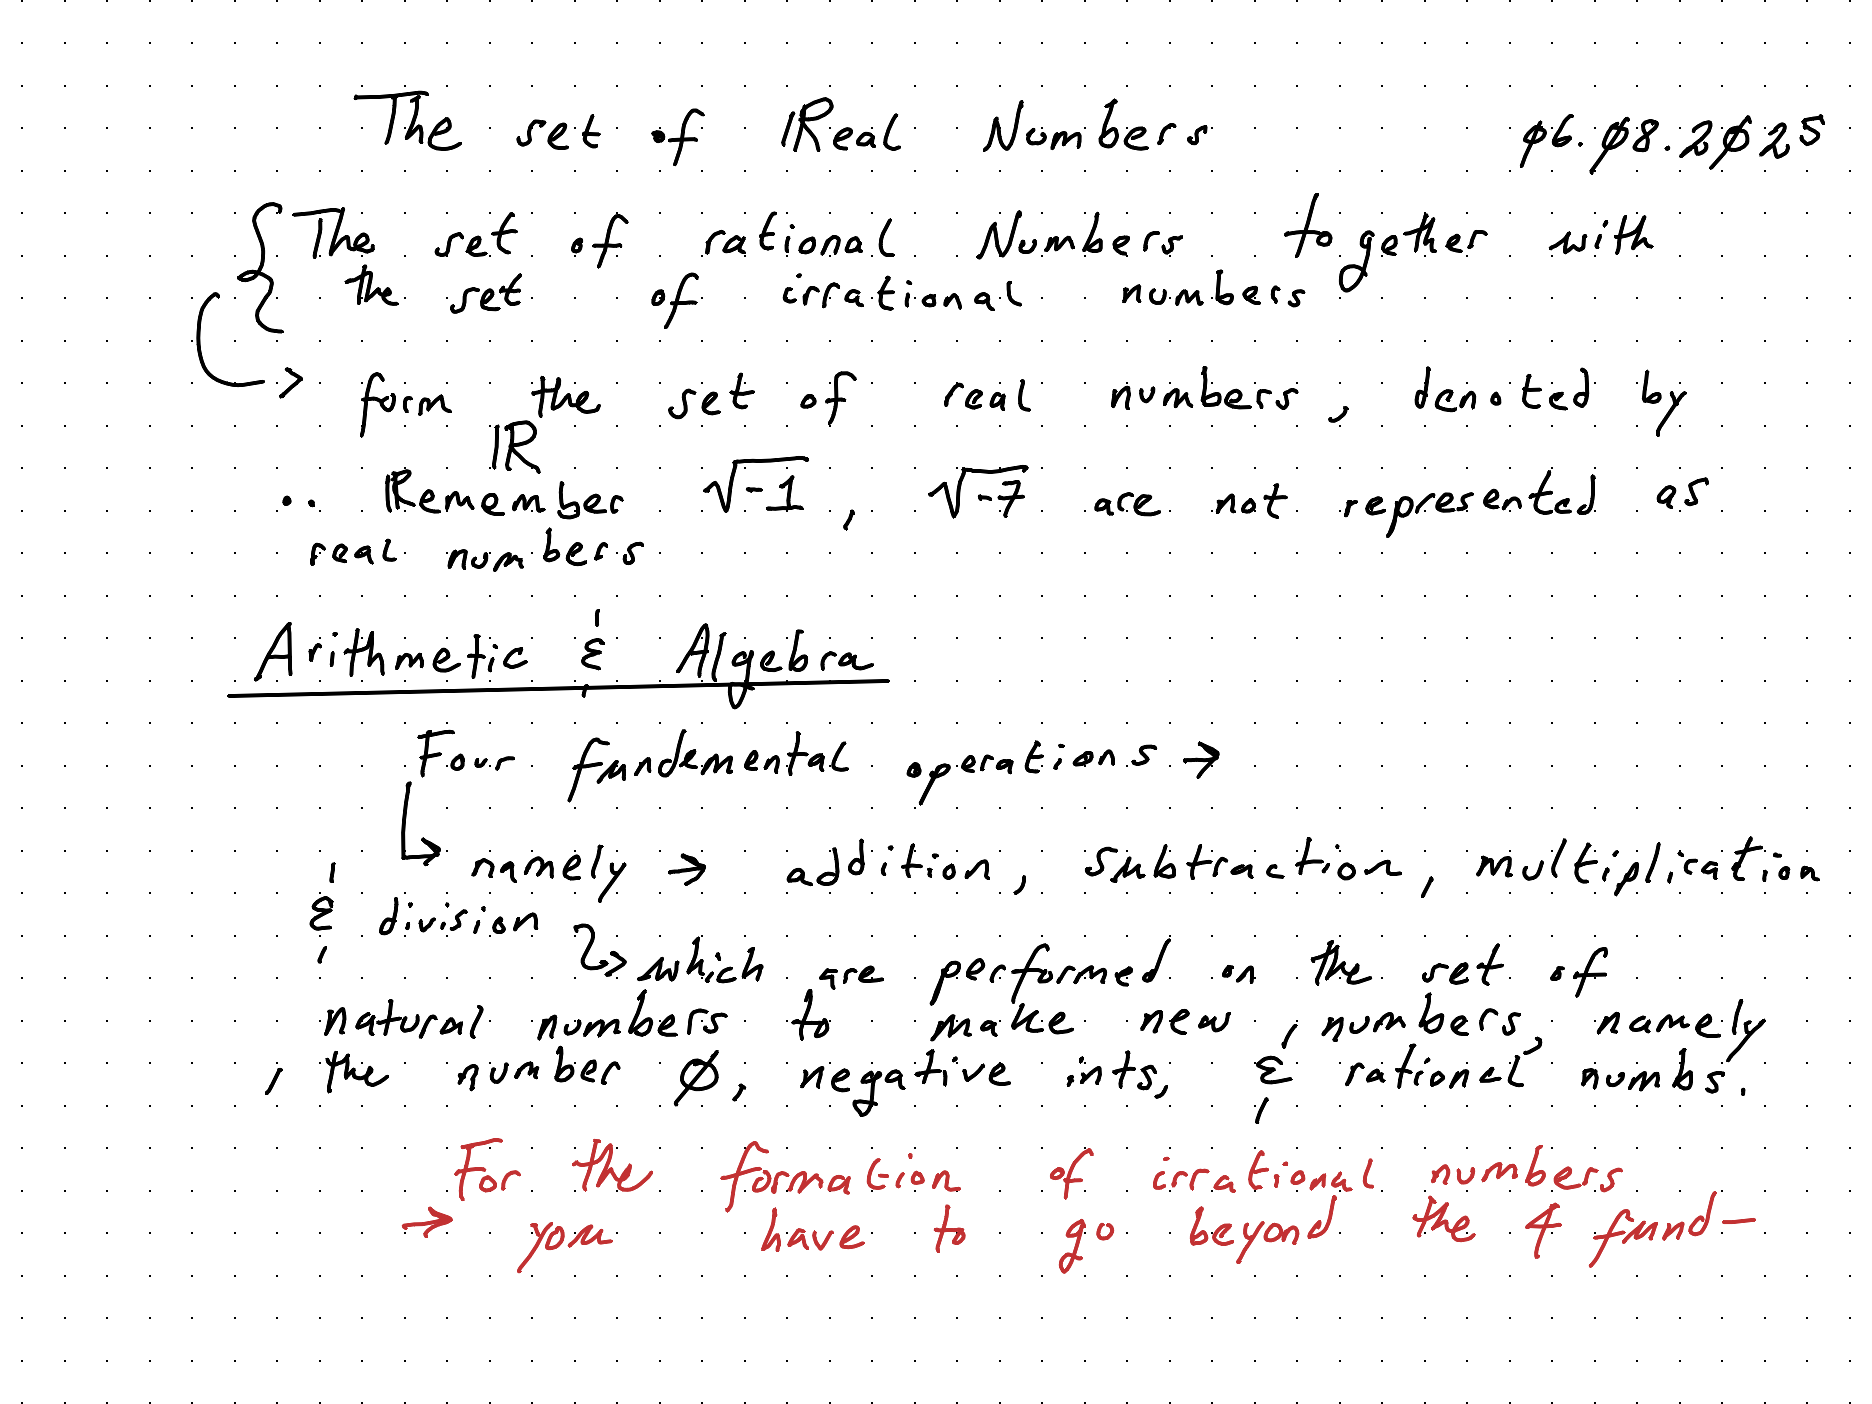 The set of ℝeal Numbers 06.08.2025
{The set of rational Numbers together with
the set of irrational numbers
→ form the set of real numbers, denoted by
ℝ
.. Remember √-1, √-7 are not represented as
real numbers
Arithmetic & Algebra
Four fundemental operations →
↳ namely → addition, subtraction, multiplication
& division
↳ which are performed on the set of
natural numbers to make new, numbers, namely
, the number 0, negative ints, & rational numbs.
For the formation of irrational numbers
→ you have to go beyond the 4 fund-